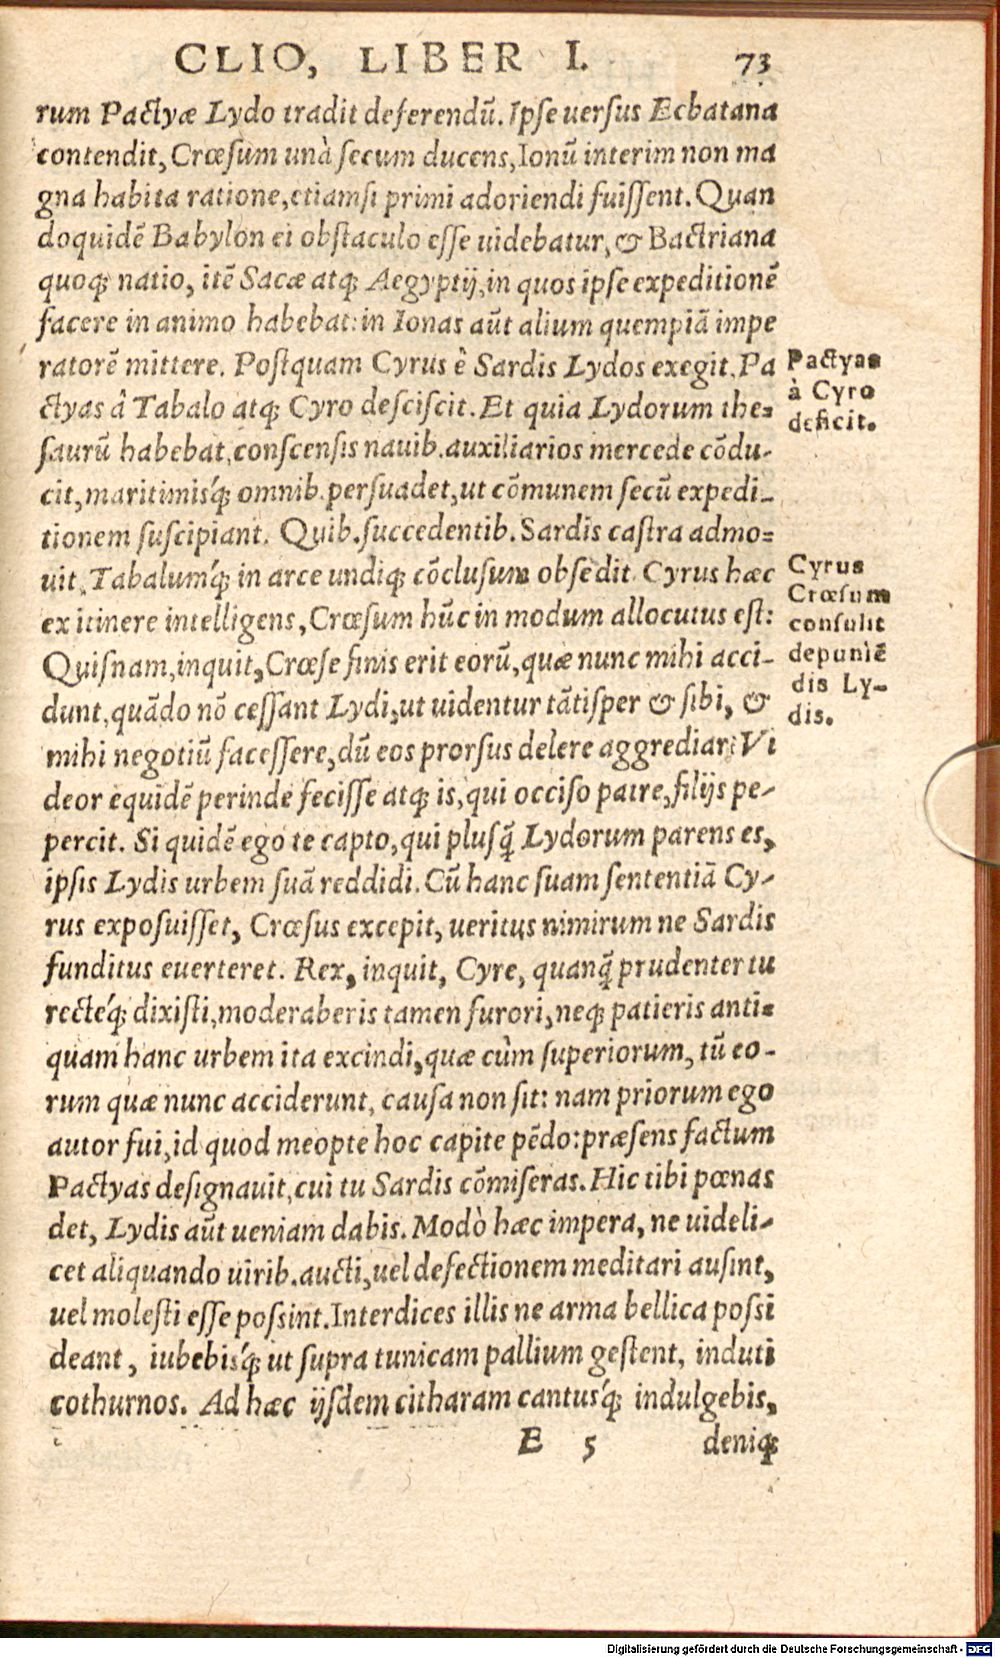 CLIO, LIBER I. 73
rum Pactyæ Lydo tradit deferendũ. Ipse uersus Ecbatana
contendit, Crœsum unà secum ducens, Ionũ interim non ma
gna habita ratione, etiamsi primi adoriendi fuissent. Quan
doquidẽ Babylon ei obstaculo esse uidebatur, & Bactriana
quoq; natio, itẽ Sacæ atq; Aegyptij, in quos ipse expeditionẽ
facere in animo habebat: in Ionas aũt alium quempiã impe
ratorẽ mittere. Postquam Cyrus è Sardis Lydos exegit, Pa
ctyas â Tabalo atq; Cyro desciscit. Et quia Lydorum the=
saurũ habebat, conscensis nauib. auxiliarios mercede cõdu-
cit, maritimisq́; omnib. persuadet, ut cõmunem secũ expedi-
tionem suscipiant. Quib. succedentib. Sardis castra admo=
uit, Tabalumq́; in arce undiq; cõclusum obsedit. Cyrus hæc
ex itinere intelligens, Crœsum hũc in modum allocutus est:
Quisnam, inquit, Crœse finis erit eorũ, quæ nunc mihi acci-
dunt, quãdo nõ cessant Lydi, ut uidentur tãtisper & sibi, &
mihi negotiũ facessere, dũ eos prorsus delere aggrediar? Vi
deor equidẽ perinde fecisse atq; is, qui occiso patre, filijs pe-
percit. Si quidẽ ego te capto, qui plusq̃ Lydorum parens es,
ipsis Lydis urbem suã reddidi. Cũ hanc suam sententiã Cy-
rus exposuisset, Crœsus excepit, ueritus nimirum ne Sardis
funditus euerteret. Rex, inquit, Cyre, quanq̃ prudenter tu
recteq́; dixisti, moderaberis tamen furori, neq; patieris anti=
quam hanc urbem ita excindi, quæ cùm superiorum, tũ eo-
rum quæ nunc acciderunt, causa non sit: nam priorum ego
autor fui, id quod meopte hoc capite pẽdo: præsens factum
Pactyas designauit, cui tu Sardis cõmiseras. Hic tibi pœnas
det, Lydis aũt ueniam dabis. Modò hæc impera, ne uideli-
cet aliquando uirib. aucti, uel defectionem meditari ausint,
uel molesti esse possint. Interdices illis ne arma bellica possi
deant, iubebisq́; ut supra tunicam pallium gestent, induti
cothurnos. Ad hæc ijsdem citharam cantusq́; indulgebis,
E 5 deniq;
Pactyas
à Cyro
deficit.
Cyrus
Crœsum
consulit
de puniẽ
dis Ly-
dis.
Digitalisierung gefördert durch die Deutsche Forschungsgemeinschaft - DFG